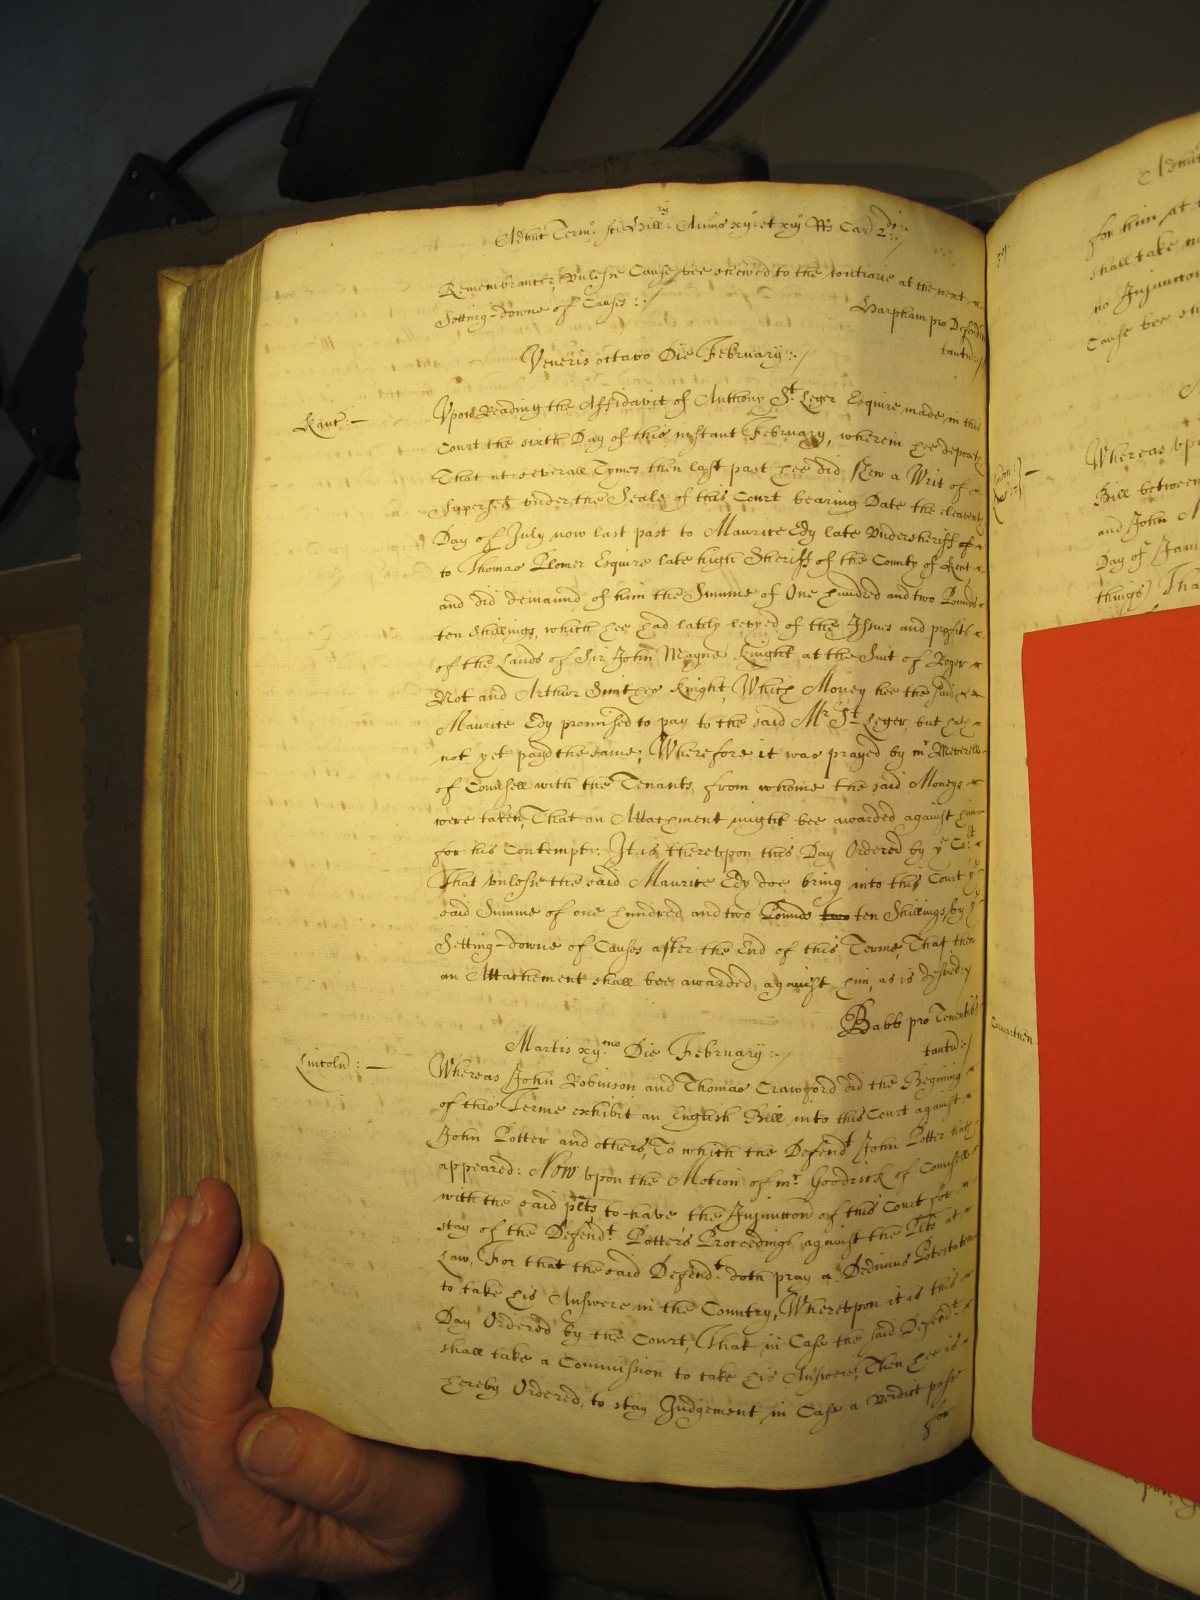 Adhuc Term: Sci Hill: Annis xij et xiij Rs Car 2di
Remembrancer, Unlesse Cause bee shewed to the contrarie at the next
Setting-downe of Causes:
Harpham pro Defend
tantu:
Veneris octavo Die February:
Kanc:
Upon Reading the Affidavit of Anthony St Leger Esquire made in this
Court the sixth Day of this instant February, wherein hee deposeth
That at severall Tymes then last past hee did shew a Writ of
Supersed under the Seale of this Court bearing Date the eleaventh
Day of July now last past to Maurice Edy late Undersheriff of
to Thomas Plomer Esquire late high Sheriff of the County of Kent
and did demaund of him the Summe of One hundred and two Pounds
ten Shillings, which hee had lately levyed of the Issues and profits
of the Lands of Sir John Mayne Knight at the Suit of Roger
Not and Arthur Knight, Which Money hee the said
Maurice Edy promised to pay to the said Mr St Leger, but hath
not yet payd the same; Wherefore it was prayed by mr Meverell
of Counsell with the Tenants from whome the said Moneys
were taken, That an Attachment might bee awarded against him
for his Contempt: It is thereupon this Day Ordered by ye Cort
That unlesse the said Maurice Edy doe bring into this Court ye
said Summe of one hundred and two Pounds two ten Shillings, by ye
Setting-downe of Causes after the End of this Terme, That then
an Attachement shall bee awarded against him, as is desired:
Babb pro Tenentibs
tantu:
Martis xijmo Die February:
Lincoln:
Whereas John Robinson and Thomas Crawford did the Begining
of this Terme exhibit an English Bill into this Court against
John Potter and others, To which the Defendt John Potter hath
appeared: Now upon the Motion of mr Goodrick of Counsell
with the said plts to have the Injunccon of this Court for
stay of the Defendt Potters Proceedings against the Plts at
Law, For that the said Defendt doth pray a Dedimus Potestatem
to take his Answere in the Country, Whereupon it is this
Day Ordered by the Court, That in Case the said Defendt
shall take a Commission to take his Answere, Then hee is
hereby Ordered, to stay Judgement in Case a Verdict passe
for
for him at
shall take
no Injunccon
Cause bee
Whereas up
Bill between
and John
Day of
things) Tha
Carmarthen